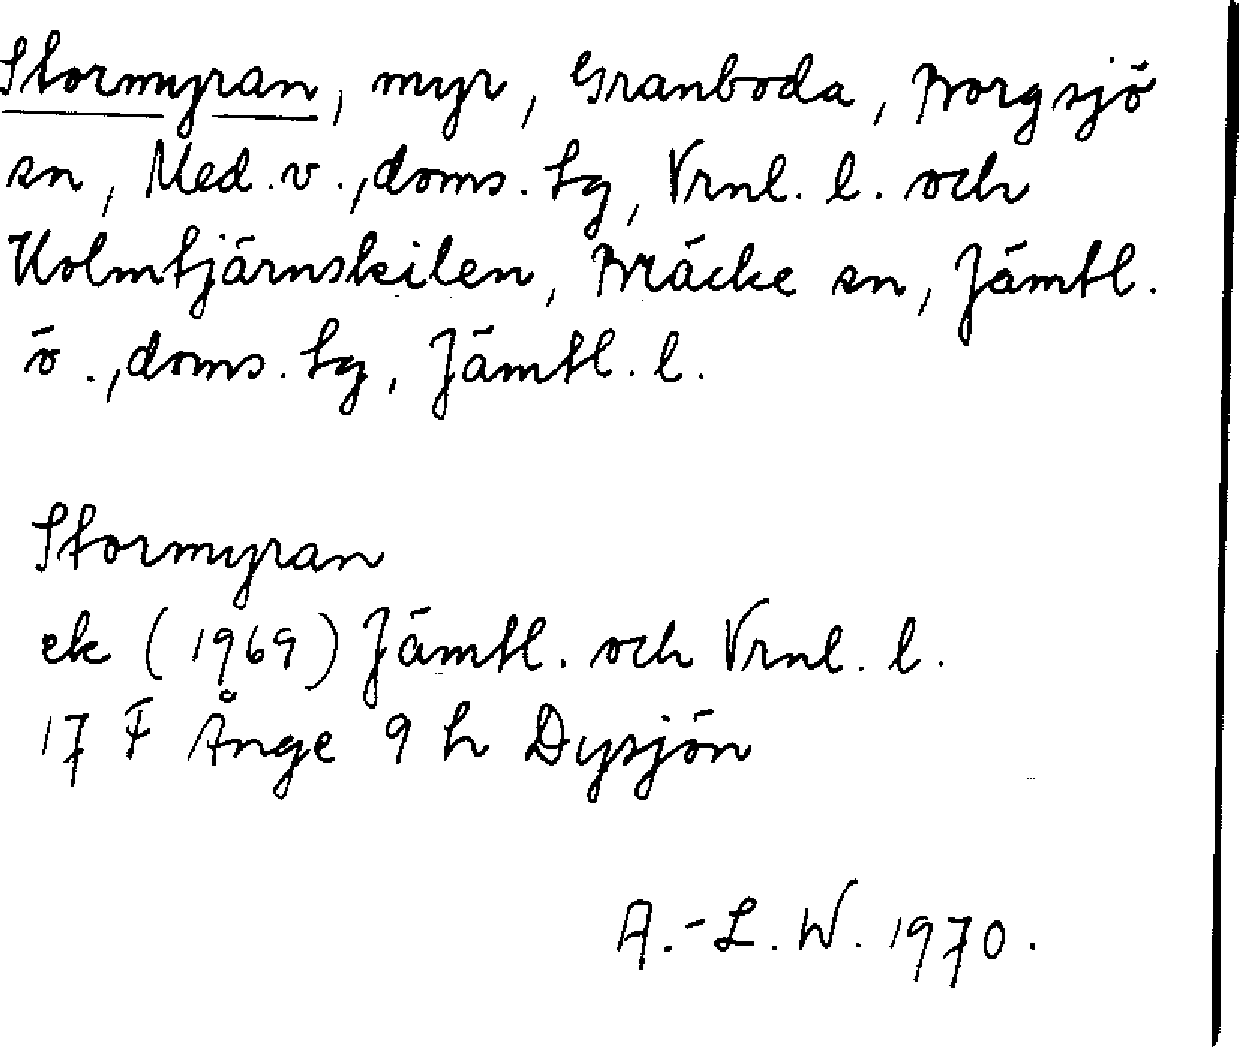 Stormyran, myr, Granboda, Borgsjö
sn, Med. v., doms. tg, Vrnl. l. och
Holmtjärnskilen, Bräcke sn, Jämtl.
ö., doms. tg, Jämtl. l.
Stormyran
ek (1969) Jämtl. och Vrnl. l.
17 F Ånge 9 h Dysjön
A.-L. W. 1970.